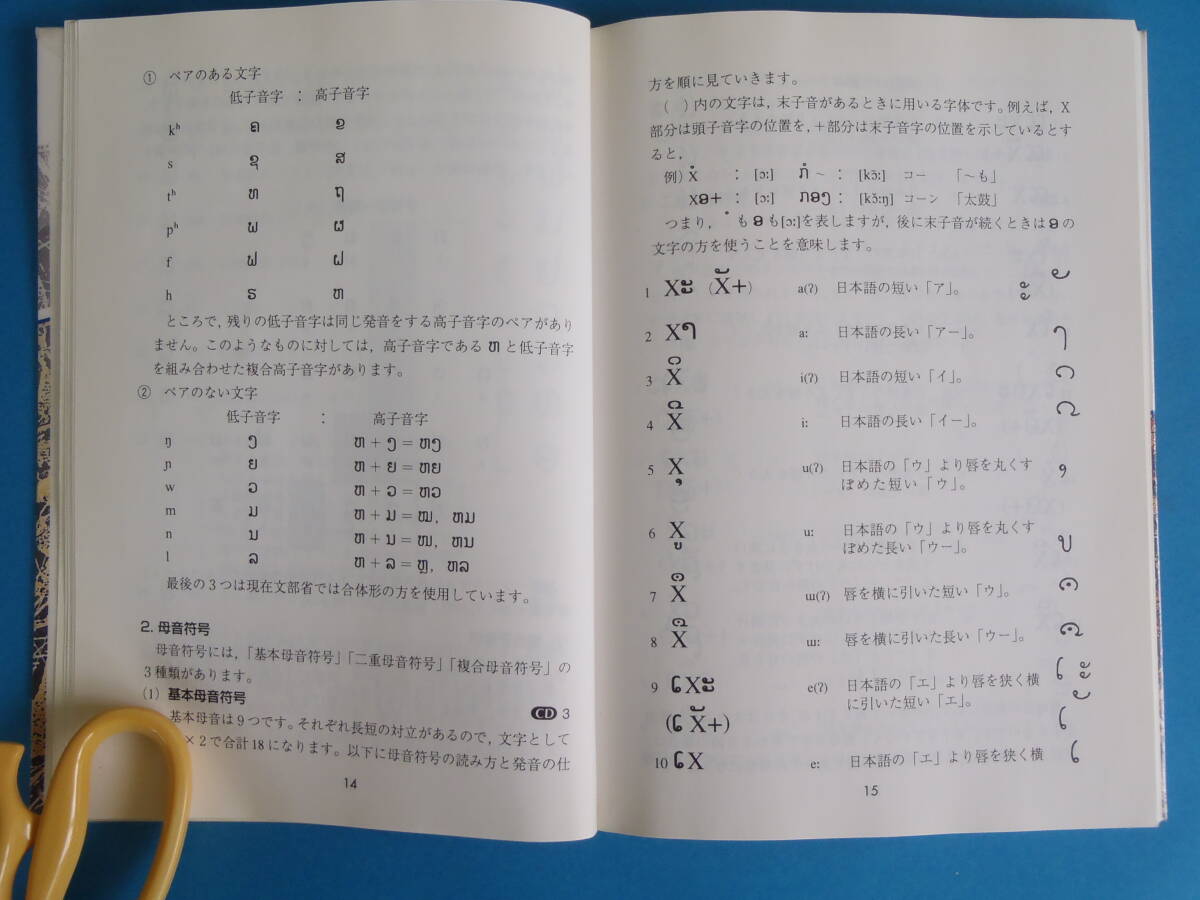 ① ペアのある文字
低子音字 : 高子音字
kʰ ຄ ຂ
s ຊ ສ
tʰ ທ ຖ
pʰ ພ ຜ
f ຟ ຝ
h ຣ ຫ
ところで，残りの低子音字は同じ発音をする高子音字のペアがあり
ません。このようなものに対しては，高子音字である ຫ と低子音字
を組み合わせた複合高子音字があります。
② ペアのない文字
低子音字 : 高子音字
ŋ ງ ຫ + ງ = ຫງ
ɲ ຍ ຫ + ຍ = ຫຍ
w ວ ຫ + ວ = ຫວ
m ມ ຫ + ມ = ໝ, ຫມ
n ນ ຫ + ນ = ໜ, ຫນ
l ລ ຫ + ລ = ຫຼ, ຫລ
最後の3つは現在文部省では合体形の方を使用しています。
2. 母音符号
母音符号には，「基本母音符号」「二重母音符号」「複合母音符号」の
3種類があります。
(1) 基本母音符号
CD 3
基本母音は9つです。それぞれ長短の対立があるので，文字として
×2で合計18になります。以下に母音符号の読み方と発音の仕
14
方を順に見ていきます。
( )内の文字は，末子音があるときに用いる字体です。例えば，X
部分は頭子音字の位置を，+部分は末子音字の位置を示しているとす
ると，
例) Xໍ : [ɔː] ກໍ ～ : [kɔ̌ː] コー 「～も」
Xອ+ : [ɔː] ກອງ : [kɔ̌ːŋ] コーン 「太鼓」
つまり， ໍ も ອ も[ɔː]を表しますが，後に末子音が続くときは ອ の
文字の方を使うことを意味します。
1 Xະ (Xັ+) a(ʔ) 日本語の短い「ア」。 ະ ັ
2 Xາ aː 日本語の長い「アー」。 າ
3 Xິ i(ʔ) 日本語の短い「イ」。 ິ
4 Xີ iː 日本語の長い「イー」。 ີ
5 Xຸ u(ʔ) 日本語の「ウ」より唇を丸くす ຸ
ぼめた短い「ウ」。
6 Xູ uː 日本語の「ウ」より唇を丸くす ູ
ぼめた長い「ウー」。
7 Xຶ ɯ(ʔ) 唇を横に引いた短い「ウ」。 ຶ
8 Xື ɯː 唇を横に引いた長い「ウー」。 ື
9 ເXະ e(ʔ) 日本語の「エ」より唇を狭く横 ເ ະ
に引いた短い「エ」。
(ເXັ+) ເ ັ
10 ເX eː 日本語の「エ」より唇を狭く横 ເ
15